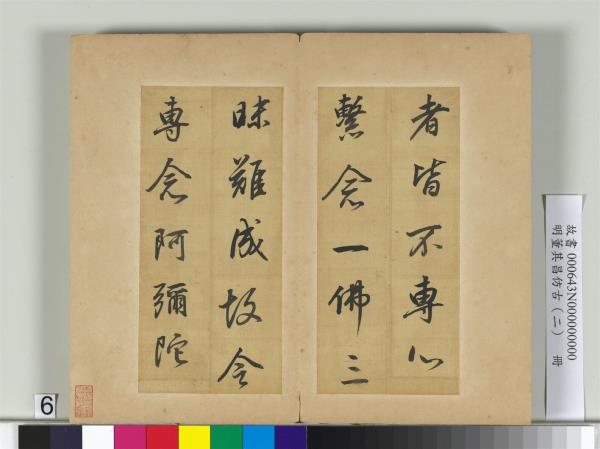 者皆不專心
繫念一佛三
昧難成故令
專念阿彌陀
故書 000643N000000000
明董其昌仿古（二） 冊
6